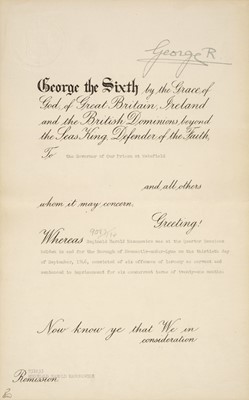 George R
George the Sixth, by the Grace of
God, of Great Britain, Ireland
and the British Dominions beyond
the Seas King, Defender of the Faith,
To The Governor of Our Prison at Wakefield
and all others
whom it may concern,
Greeting!
Whereas Reginald Harold was at the Quarter Sessions
holden in and for the Borough of on the Thirtieth day
of September, 1940, convicted of six offences of larceny as servant and
sentenced to imprisonment for six
Now know ye that We in
consideration
Remission.